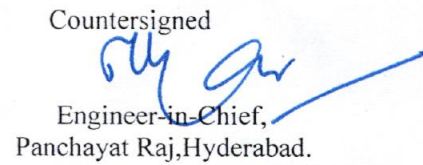 Countersigned
Engineer-in-Chief,
Panchayat Raj,Hyderabad.